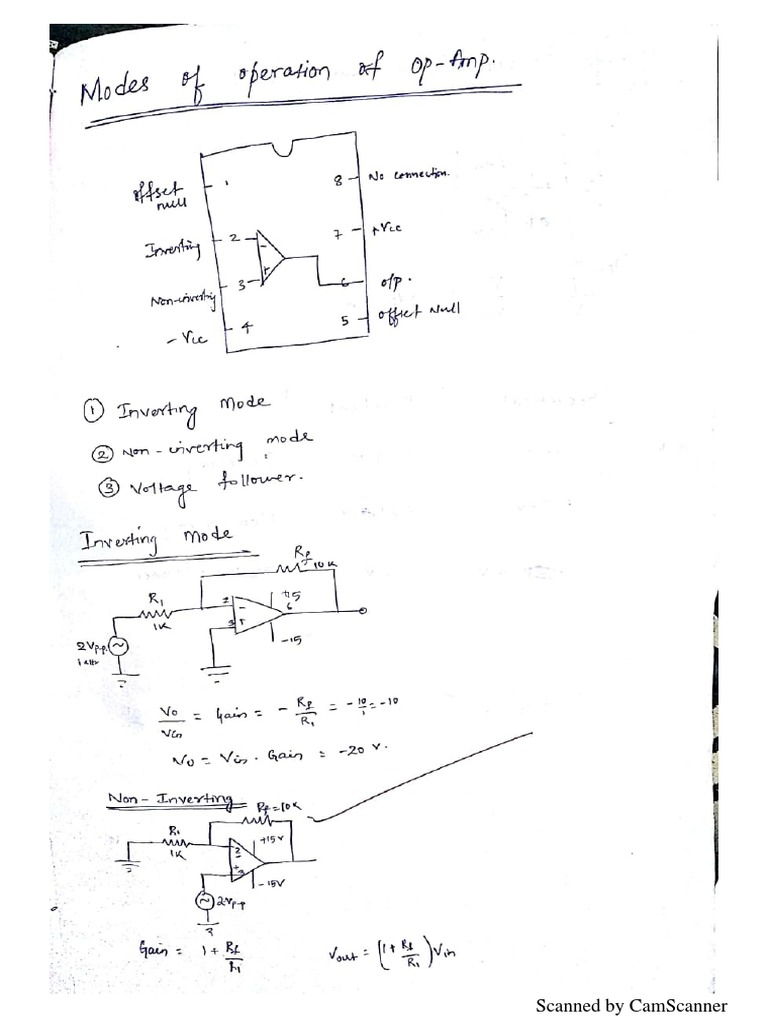 Modes of operation of Op-Amp.
offset null
1
8 No connection.
Inverting 2 -
7 +Vcc
Non-inverting 3 +
6 o/p.
-Vcc 4
5 offset Null
① Inverting Mode
② Non-inverting mode
③ Voltage follower.
Inverting Mode
Rf 10K
R1
1K
2 -
3 +
+15
6
-15
2Vp.p.
Vo/Vin = Gain = - Rf/R1 = -10/1 = -10
Vo = Vin . Gain = -20 V.
Non-Inverting
Rf=10K
R1
1K
2 -
+ 3
+15V
-15V
2Vp.p
Gain = 1 + Rf/R1
Vout = (1 + Rf/R1) Vin
Scanned by CamScanner